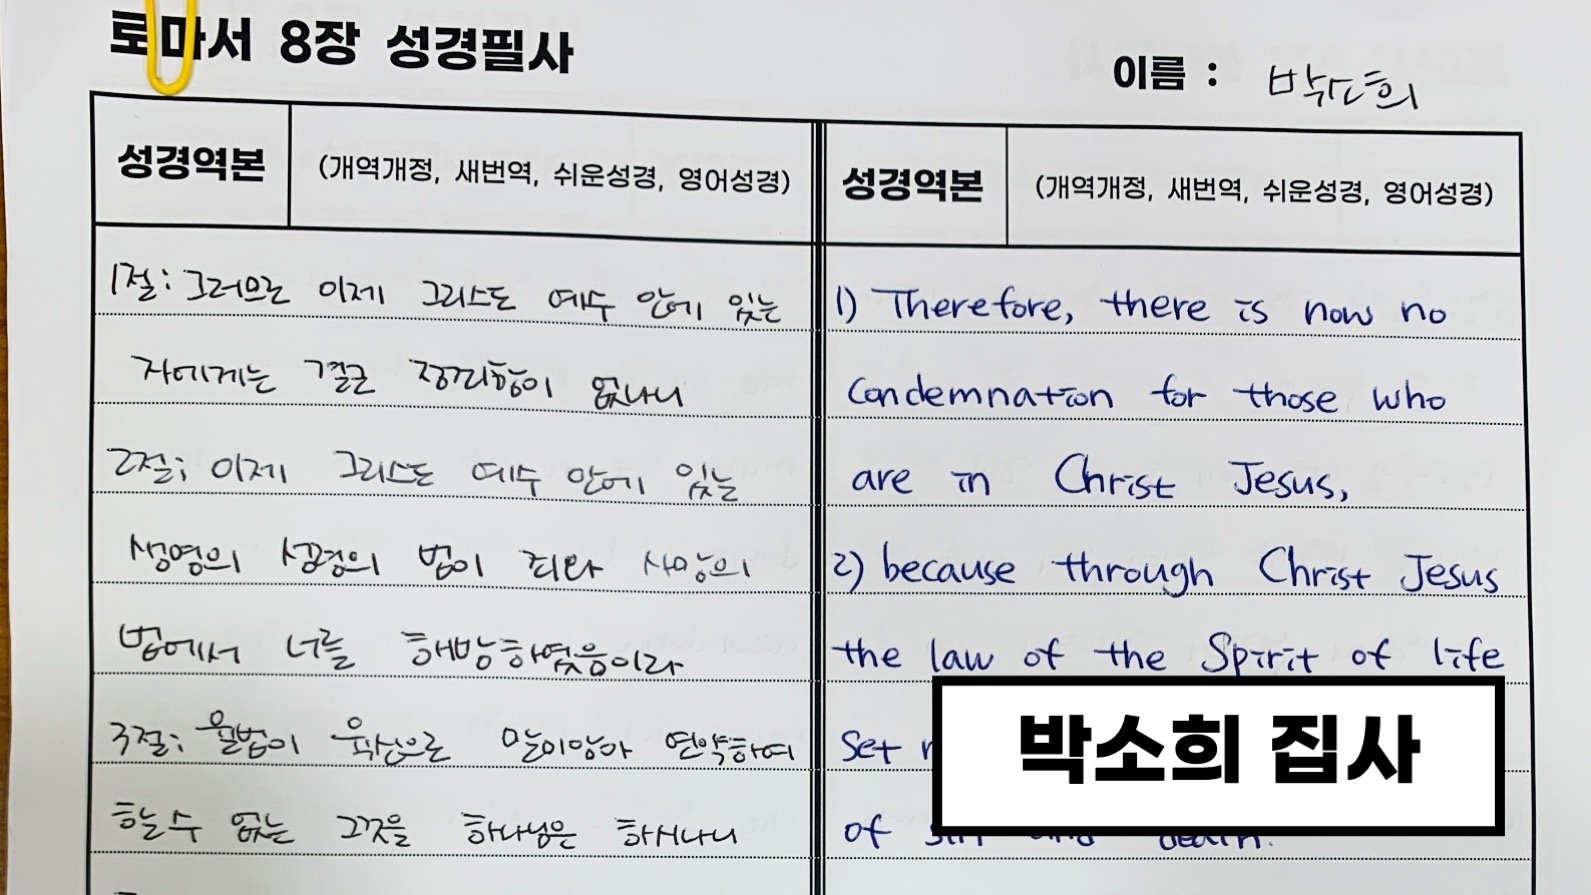 로마서 8장 성경필사
이름 : 박소희
성경역본 (개역개정, 새번역, 쉬운성경, 영어성경)
1절: 그러므로 이제 그리스도 예수 안에 있는
자에게는 결코 정죄함이 없나니
2절: 이제 그리스도 예수 안에 있는
생명의 성령의 법이 죄와 사망의
법에서 너를 해방하였음이라
3절: 율법이 육신으로 말미암아 연약하여
할 수 없는 그것을 하나님은 하시나니
성경역본 (개역개정, 새번역, 쉬운성경, 영어성경)
1) Therefore, there is now no
condemnation for those who
are in Christ Jesus,
2) because through Christ Jesus
the law of the Spirit of life
set
of sin and death.
박소희 집사